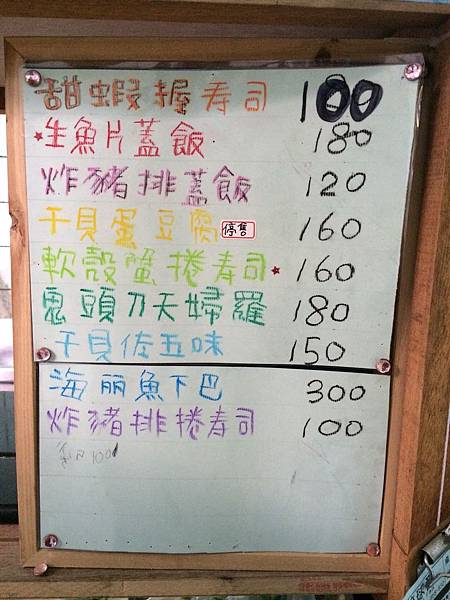 甜蝦握寿司 100
★生魚片蓋飯 180
炸豬排蓋飯 120
干貝蛋豆腐 停售 160
軟殼蟹捲寿司★ 160
鬼頭刀天婦羅 180
干貝佐五味 150
海丽魚下巴 300
炸豬排捲寿司 100